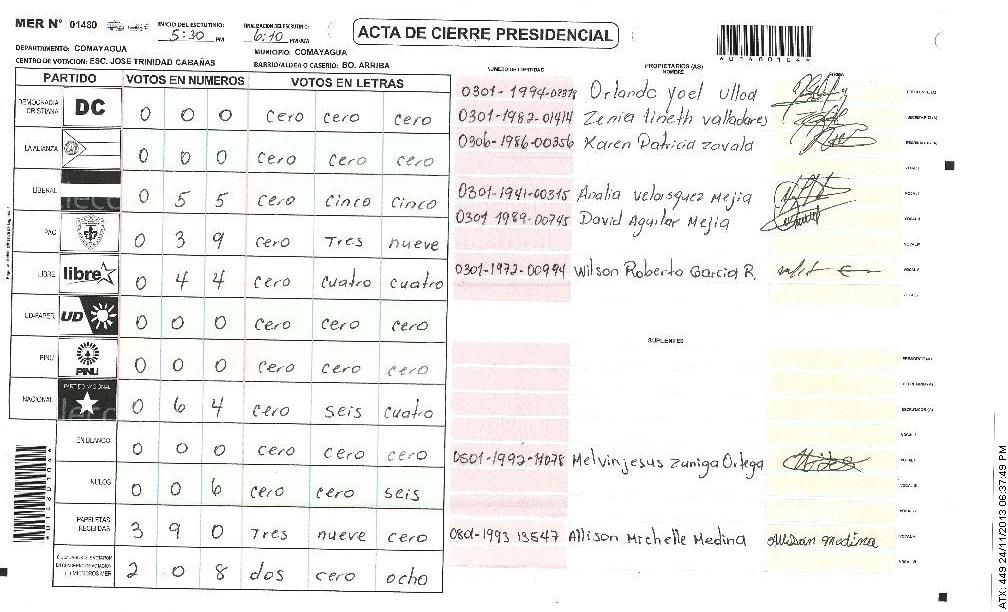 MER N° 01480
INICIO DEL ESCRUTINIO: 5:30 PM
FINALIZACION DEL ESCRUTINIO: 6:10 PM/AM
ACTA DE CIERRE PRESIDENCIAL
DEPARTAMENTO: COMAYAGUA
MUNICIPIO: COMAYAGUA
CENTRO DE VOTACION: ESC. JOSE TRINIDAD CABAÑAS
BARRIO/ALDEA O CASERIO: BO. ARRIBA
PARTIDO VOTOS EN NUMEROS VOTOS EN LETRAS
DEMOCRACIA CRISTIANA DC 0 0 0 cero cero cero
LA ALIANZA 0 0 0 cero cero cero
LIBERAL 0 5 5 cero cinco cinco
PAC 0 3 9 cero Tres nueve
LIBRE libre 0 4 4 cero cuatro cuatro
UD-FAPER UD 0 0 0 cero cero cero
PINU PINU 0 0 0 cero cero cero
NACIONAL PARTIDO NACIONAL 0 6 4 cero seis cuatro
EN BLANCO 0 0 0 cero cero cero
NULOS 0 0 6 cero cero seis
PAPELETAS RECIBIDAS 3 9 0 Tres nueve cero
2 0 8 dos cero ocho
NUMERO DE IDENTIDAD
PROPIETARIOS (AS)
NOMBRE
FIRMA
Orlando yoel ulloa
0301-1982-01414 Zenia lineth valladares
0306-1986-00356 Karen Patricia zavala
0301-1941-00315 Analia velasquez Mejia
0301 1989-00745 David Aguilar Mejia
0301-1972-00994 Wilson Roberto Garcia R.
SUPLENTES
Melvin jesus zuniga Ortega
0801-1993 13547 Allison Michelle Medina Allison Medina
ATX: 449 24/11/2013 06:37:49 PM